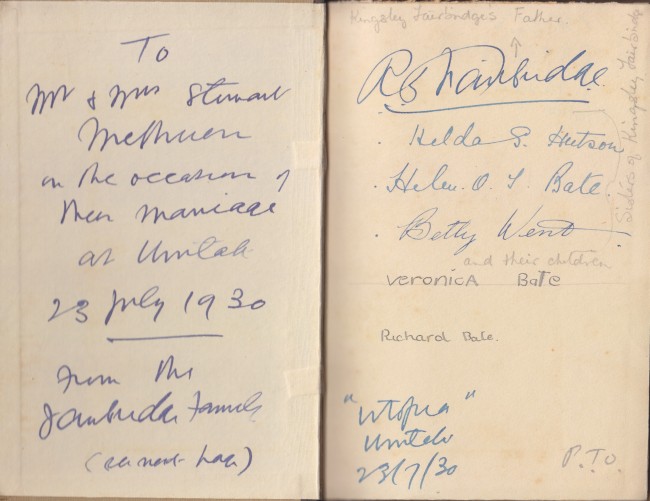 To
Mr & Mrs Stewart
Methuen
on the occasion of
their marriage
at Umtali
23 July 1930
From the
Fairbridge Family
(see next page)
Kingsley Fairbridge's Father.
R B Fairbridge
Hilda G. Hutson
Helen. O. T. Bate.
Betty Went
Sisters of Kingsley Fairbridge
and their children
Veronica Bate
Richard Bate.
"Utopia"
Umtali
23/7/30
P.T.O.